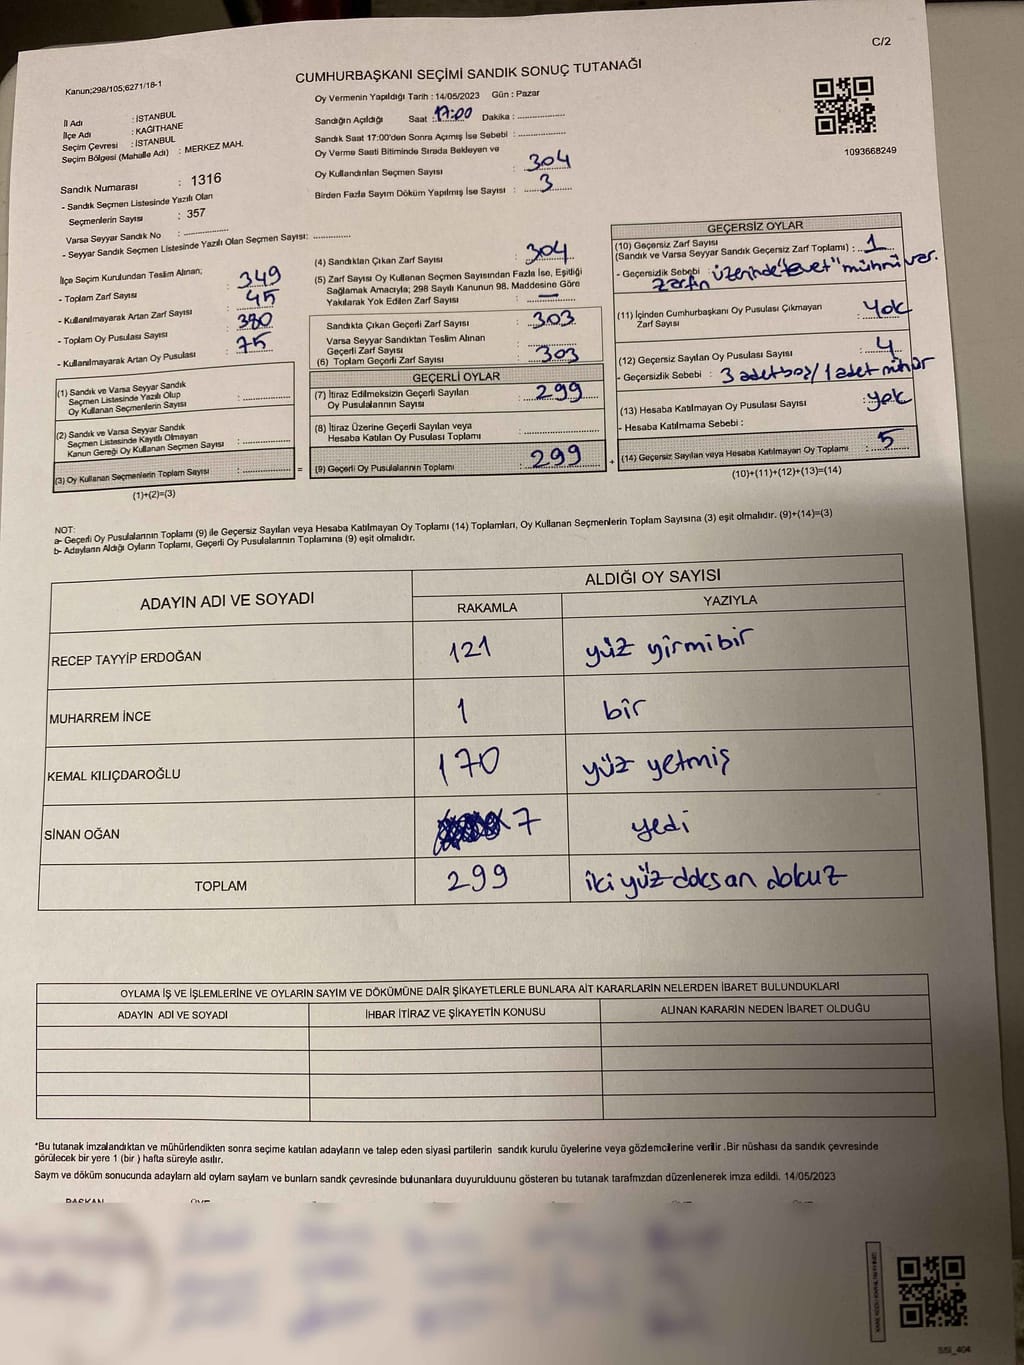 C/2
Kanun;298/105;6271/18-1
CUMHURBAŞKANI SEÇİMİ SANDIK SONUÇ TUTANAĞI
1093668249
İl Adı : İSTANBUL
İlçe Adı : KAĞITHANE
Seçim Çevresi : İSTANBUL
Seçim Bölgesi (Mahalle Adı) : MERKEZ MAH.
Sandık Numarası : 1316
- Sandık Seçmen Listesinde Yazılı Olan
Seçmenlerin Sayısı : 357
Varsa Seyyar Sandık No : ....................
- Seyyar Sandık Seçmen Listesinde Yazılı Olan Seçmen Sayısı: ..............
Oy Vermenin Yapıldığı Tarih : 14/05/2023 Gün : Pazar
Sandığın Açıldığı Saat : 17:00 Dakika : ..................
Sandık Saat 17:00'den Sonra Açımış İse Sebebi : ..................
Oy Verme Saati Bitiminde Sırada Bekleyen ve
Oy Kullandırılan Seçmen Sayısı : 304
Birden Fazla Sayım Döküm Yapılmış İse Sayısı : 3
İlçe Seçim Kurulundan Teslim Alınan;
- Toplam Zarf Sayısı : 349
- Kullanılmayarak Artan Zarf Sayısı : 45
- Toplam Oy Pusulası Sayısı : 380
- Kullanılmayarak Artan Oy Pusulası : 75
(1) Sandık ve Varsa Seyyar Sandık
Seçmen Listesinde Yazılı Olup
Oy Kullanan Seçmenlerin Sayısı : ..............
(2) Sandık ve Varsa Seyyar Sandık
Seçmen Listesinde Kayıtlı Olmayan
Kanun Gereği Oy Kullanan Seçmen Sayısı : ..............
(3) Oy Kullanan Seçmenlerin Toplam Sayısı : ..............
=
(1)+(2)=(3)
(4) Sandıktan Çıkan Zarf Sayısı : 304
(5) Zarf Sayısı Oy Kullanan Seçmen Sayısından Fazla İse, Eşitliği
Sağlamak Amacıyla; 298 Sayılı Kanunun 98. Maddesine Göre
Yakılarak Yok Edilen Zarf Sayısı : —
Sandıkta Çıkan Geçerli Zarf Sayısı : 303
Varsa Seyyar Sandıktan Teslim Alınan
Geçerli Zarf Sayısı : ..............
(6) Toplam Geçerli Zarf Sayısı : 303
GEÇERLİ OYLAR
(7) İtiraz Edilmeksizin Geçerli Sayılan
Oy Pusulalarının Sayısı : 299
(8) İtiraz Üzerine Geçerli Sayılan veya
Hesaba Katılan Oy Pusulası Toplamı : ..............
(9) Geçerli Oy Pusulalarının Toplamı : 299
+
GEÇERSİZ OYLAR
(10) Geçersiz Zarf Sayısı
(Sandık ve Varsa Seyyar Sandık Geçersiz Zarf Toplamı) : 1
- Geçersizlik Sebebi : Zarfın üzerinde "evet" mührü var.
(11) İçinden Cumhurbaşkanı Oy Pusulası Çıkmayan
Zarf Sayısı : Yok
(12) Geçersiz Sayılan Oy Pusulası Sayısı : 4
- Geçersizlik Sebebi : 3 adet boş / 1 adet mühür
(13) Hesaba Katılmayan Oy Pusulası Sayısı : yok
- Hesaba Katılmama Sebebi :
(14) Geçersiz Sayılan veya Hesaba Katılmayan Oy Toplamı : 5
(10)+(11)+(12)+(13)=(14)
NOT:
a- Geçerli Oy Pusulalarının Toplamı (9) ile Geçersiz Sayılan veya Hesaba Katılmayan Oy Toplamı (14) Toplamları, Oy Kullanan Seçmenlerin Toplam Sayısına (3) eşit olmalıdır. (9)+(14)=(3)
b- Adayların Aldığı Oyların Toplamı, Geçerli Oy Pusulalarının Toplamına (9) eşit olmalıdır.
ADAYIN ADI VE SOYADI
ALDIĞI OY SAYISI
RAKAMLA YAZIYLA
RECEP TAYYİP ERDOĞAN 121 yüz yirmi bir
MUHARREM İNCE 1 bir
KEMAL KILIÇDAROĞLU 170 yüz yetmiş
SİNAN OĞAN 7 yedi
TOPLAM 299 iki yüz doksan dokuz
OYLAMA İŞ VE İŞLEMLERİNE VE OYLARIN SAYIM VE DÖKÜMÜNE DAİR ŞİKAYETLERLE BUNLARA AİT KARARLARIN NELERDEN İBARET BULUNDUKLARI
ADAYIN ADI VE SOYADI İHBAR İTİRAZ VE ŞİKAYETİN KONUSU ALINAN KARARIN NEDEN İBARET OLDUĞU
*Bu tutanak imzalandıktan ve mühürlendikten sonra seçime katılan adayların ve talep eden siyasi partilerin sandık kurulu üyelerine veya gözlemcilerine verilir .Bir nüshası da sandık çevresinde
görülecek bir yere 1 (bir ) hafta süreyle asılır.
Sayım ve döküm sonucunda adayların ald oyların saylam ve bunların sandk çevresinde bulunanlara duyurulduunu gösteren bu tutanak tarafmzdan düzenlenerek imza edildi. 14/05/2023
BAŞKAN
SSI_404